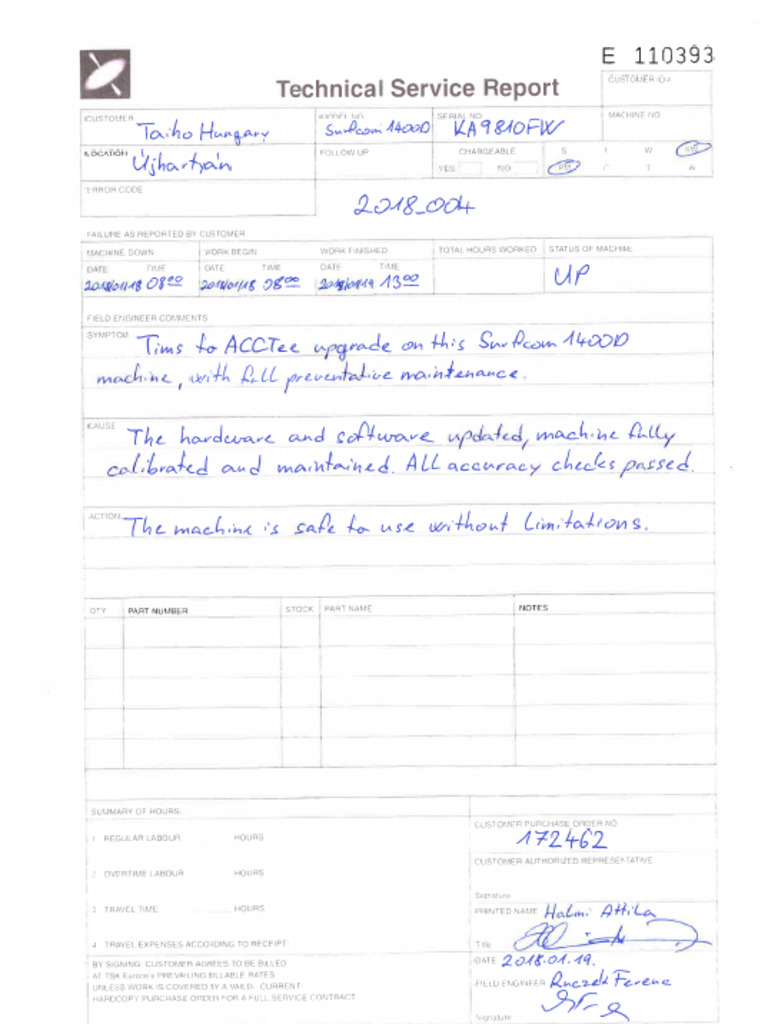 E 110393
Technical Service Report
CUSTOMER ID.#
CUSTOMER Taiho Hungary
MODEL NO. Surfcom 1400D
SERIAL NO KA9810FW
MACHINE NO
LOCATION Újhartyán
FOLLOW UP
CHARGEABLE
YES NO
S I W
I T A
ERROR CODE
2018_004
FAILURE AS REPORTED BY CUSTOMER
MACHINE DOWN WORK BEGIN WORK FINISHED TOTAL HOURS WORKED STATUS OF MACHINE
DATE TIME DATE TIME DATE TIME
2018/01/18 0800 2018/01/18 0800 2018/01/19 1300 UP
FIELD ENGINEER COMMENTS
SYMPTOM Tims to ACCTee upgrade on this Surfcom 1400D
machine, with full preventative maintenance.
KAUSE The hardware and software updated, machine fully
calibrated and maintained. All accuracy checks passed.
ACTION The machine is safe to use without limitations.
QTY PART NUMBER STOCK PART NAME NOTES
SUMMARY OF HOURS:
1 REGULAR LABOUR HOURS
2 OVERTIME LABOUR HOURS
3 TRAVEL TIME HOURS
4 TRAVEL EXPENSES ACCORDING TO RECEIPT:
BY SIGNING, CUSTOMER AGREES TO BE BILLED
AT TSK Europe's PREVAILING BILLABLE RATES
UNLESS WORK IS COVERED BY A VALID- CURRENT-
HARDCOPY PURCHASE ORDER FOR A FULL SERVICE CONTRACT
CUSTOMER PURCHASE ORDER NO.
172462
CUSTOMER AUTHORIZED REPRESENTATIVE
Signature
PRINTED NAME Halmi Attila
Title
DATE 2018.01.19.
FIELD ENGINEER Ruczek Ferenc
Signature